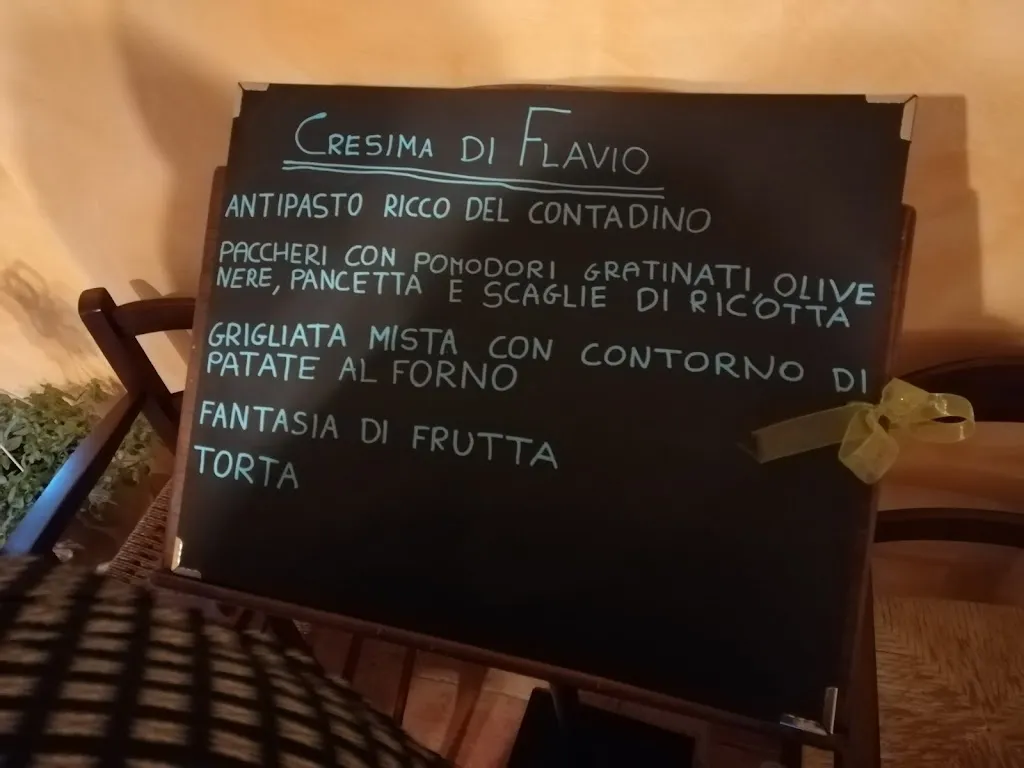 CRESIMA DI FLAVIO
ANTIPASTO RICCO DEL CONTADINO
PACCHERI CON POMODORI GRATINATI OLIVE
NERE, PANCETTA E SCAGLIE DI RICOTTA
GRIGLIATA MISTA CON CONTORNO DI
PATATE AL FORNO
FANTASIA DI FRUTTA
TORTA